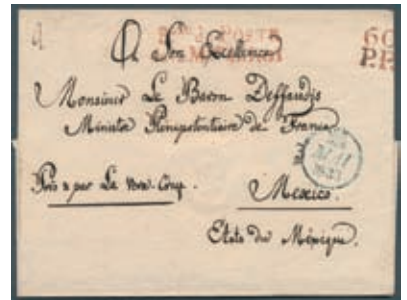 Son Excellence
60
P.P.
Monsieur Le Baron Deffaudis
Ministre Plénipotentiaire de France
par La Vera-Cruz.
Mexico.
Etats du Méxique.